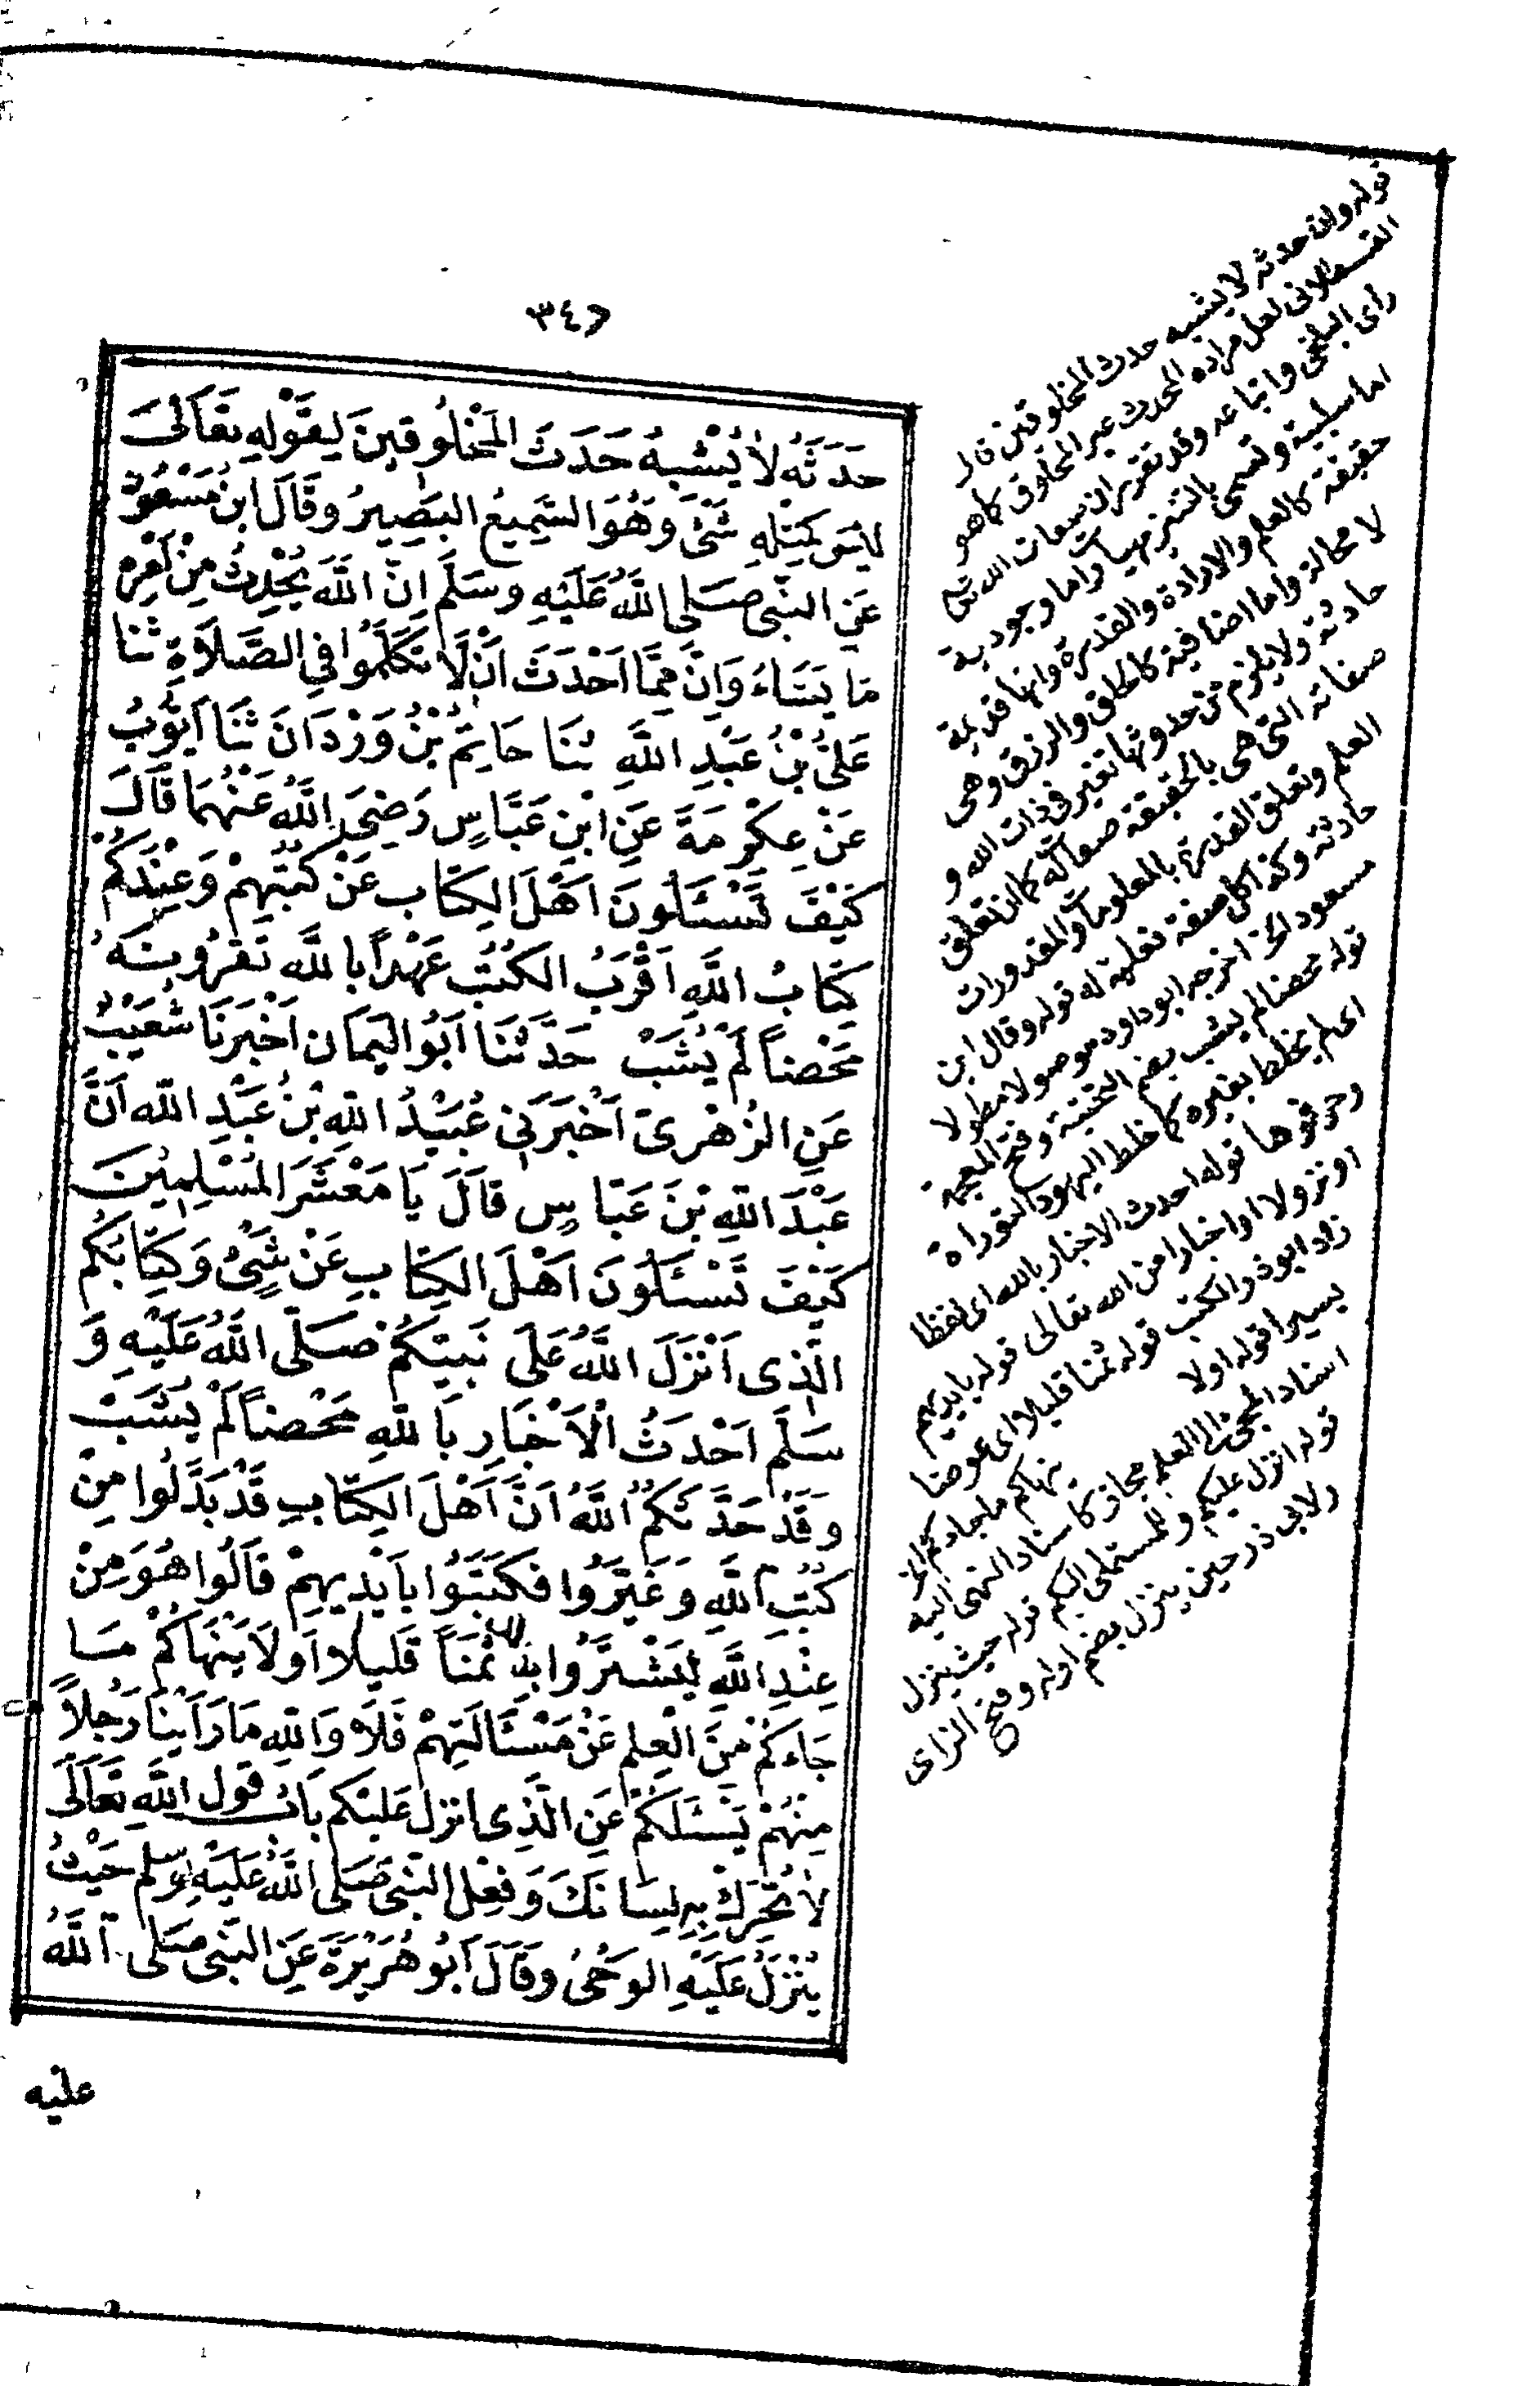 ٣٤٢
حَدَثَهُ لَا يُشْبِهُ حَدَثَ المَخْلُوقِينَ لِقَوْلِهِ تَعَالَى
لَيْسَ كَمِثْلِهِ شَىْءٌ وَهُوَ السَّمِيعُ البَصِيرُ وَقَالَ ابْنُ مَسْعُودٍ
عَنِ النَّبِىِّ صَلَّى اللَّهُ عَلَيْهِ وَسَلَّمَ اِنَّ اللَّهَ يُحْدِثُ مِنْ اَمْرِهِ
مَا يَشَاءُ وَاِنَّ مِمَّا اَحْدَثَ اَنْ لَا تَكَلَّمُوا فِى الصَّلَاةِ ثَنَا
عَلِىُّ بْنُ عَبْدِ اللَّهِ ثَنَا حَاتِمُ بْنُ وَرْدَانَ ثَنَا اَيُّوبُ
عَنْ عِكْرِمَةَ عَنِ ابْنِ عَبَّاسٍ رَضِىَ اللَّهُ عَنْهُمَا قَالَ
كَيْفَ تَسْئَلُونَ اَهْلَ الكِتَابِ عَنْ كُتُبِهِمْ وَعِنْدَكُمْ
كِتَابُ اللَّهِ اَقْرَبُ الكُتُبِ عَهْدًا بِاللَّهِ تَقْرَؤُنَهُ
مَحْضًا لَمْ يُشَبْ حَدَّثَنَا اَبُو اليَمَانِ اَخْبَرَنَا شُعَيْبٌ
عَنِ الزُّهْرِىِّ اَخْبَرَنِى عُبَيْدُ اللَّهِ بْنُ عَبْدِ اللَّهِ اَنَّ
عَبْدَ اللَّهِ بْنَ عَبَّاسٍ قَالَ يَا مَعْشَرَ المُسْلِمِيْنَ
كَيْفَ تَسْئَلُونَ اَهْلَ الكِتَابِ عَنْ شَىْءٍ وَكِتَابُكُمُ
الَّذِى اَنْزَلَ اللَّهُ عَلَى نَبِيِّكُمْ صَلَّى اللَّهُ عَلَيْهِ وَ
سَلَّمَ اَحْدَثُ الْاَخْبَارِ بِاللَّهِ مَحْضًا لَمْ يُشَبْ
وَقَدْ حَدَّثَكُمُ اللَّهُ اَنَّ اَهْلَ الكِتَابِ قَدْ بَدَّلُوا مِنْ
كُتُبِ اللَّهِ وَغَيَّرُوا فَكَتَبُوا بِاَيْدِيهِمْ قَالُوا هُوَ مِنْ
عِنْدِ اللَّهِ لِيَشْتَرُوا بِهِ ثَمَنًا قَلِيلًا اَوَلَا يَنْهَاكُمْ مَا
جَاءَكُمْ مِنَ الْعِلْمِ عَنْ مَسْئَالَتِهِمْ فَلَا وَاللَّهِ مَا رَاَيْنَا رَجُلًا
مِنْهُمْ يَسْئَلُكُمْ عَنِ الَّذِى انزل عَلَيْكُم بَابُ قول اللَّهِ تَعَالَى
لَا تُحَرِّكْ بِهِ لِسَانَكَ وَفِعْلِ النَّبِىِّ صَلَى اللَّهُ عَلَيْهِ وَسلم حَيْثُ
يُنْزَلُ عَلَيْهِ الوَحْىُ وَقَالَ اَبُو هُرَيْرَةَ عَنِ النَّبِى صَلَى اللَّهُ
عليه
قوله وان حدثه لا يشبه حدث المخلوقين قال
القسطلانى لعل مراده المحدث غير المخلوق كما هو
راى البلخى واتباعه وقد تقرر ان صفات الله تعالى
اما سلبية وتسمى بالتنزيهات واما وجودية
حقيقة كالعلم والارادة والقدرة وانها قديمة
لا محالة واما اضافية كالخلق والرزق وهى
حادثة ولا يلزم من حدوثها تغير فى ذات الله و
صفاته التى هى بالحقيقة صفات له كما ان تعلق
العلم وتعلق القدرة بالمعلومات والمقدورات
حادثة وكذا كل صفة فعلية له قوله وقال ابن
مسعود الخ اخرجه ابو داود موصولا مطولا
قوله محضا لم يشب بضم التحتية وفتح المعجمة
اى لم يخلط بغيره كما خلط اليهود التوراة
وحرفوها قوله احدث الاخبار بالله اى لفظا
او نزولا او اخبارا من الله تعالى قوله بايديهم
زاد ابو ذر الكتب قوله ثمنا قليلا اى عوضا
يسيرا قوله اولا ينهاكم ما جاءكم الخ
اسناد المجئ الى العلم مجاز كاسناد النهى اليه
قوله انزل عليكم وللمستملى اليكم قوله حيث ينزل
ولابى ذر حين ينزل بضم اوله وفتح الزاى